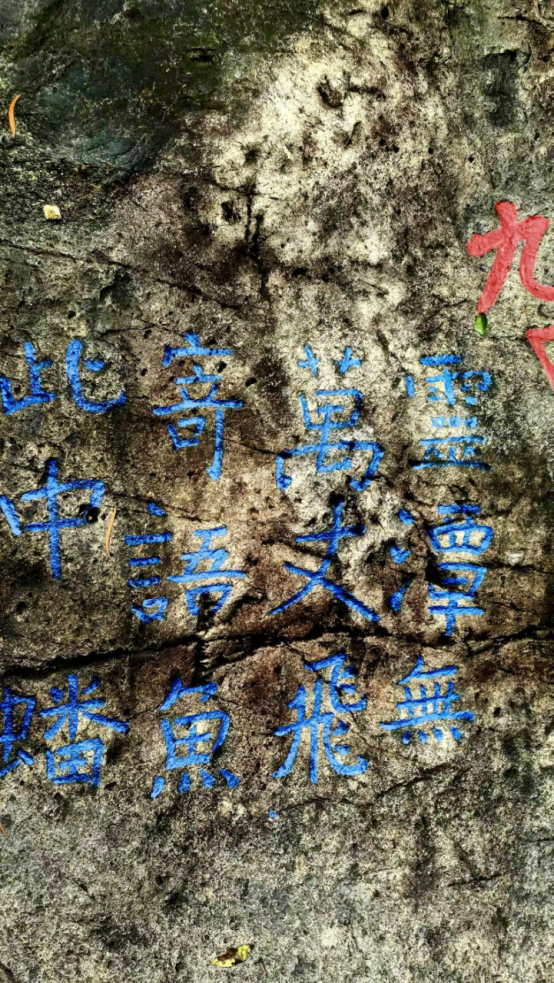 九
靈潭無
萬丈飛
寄語魚
此中蟠